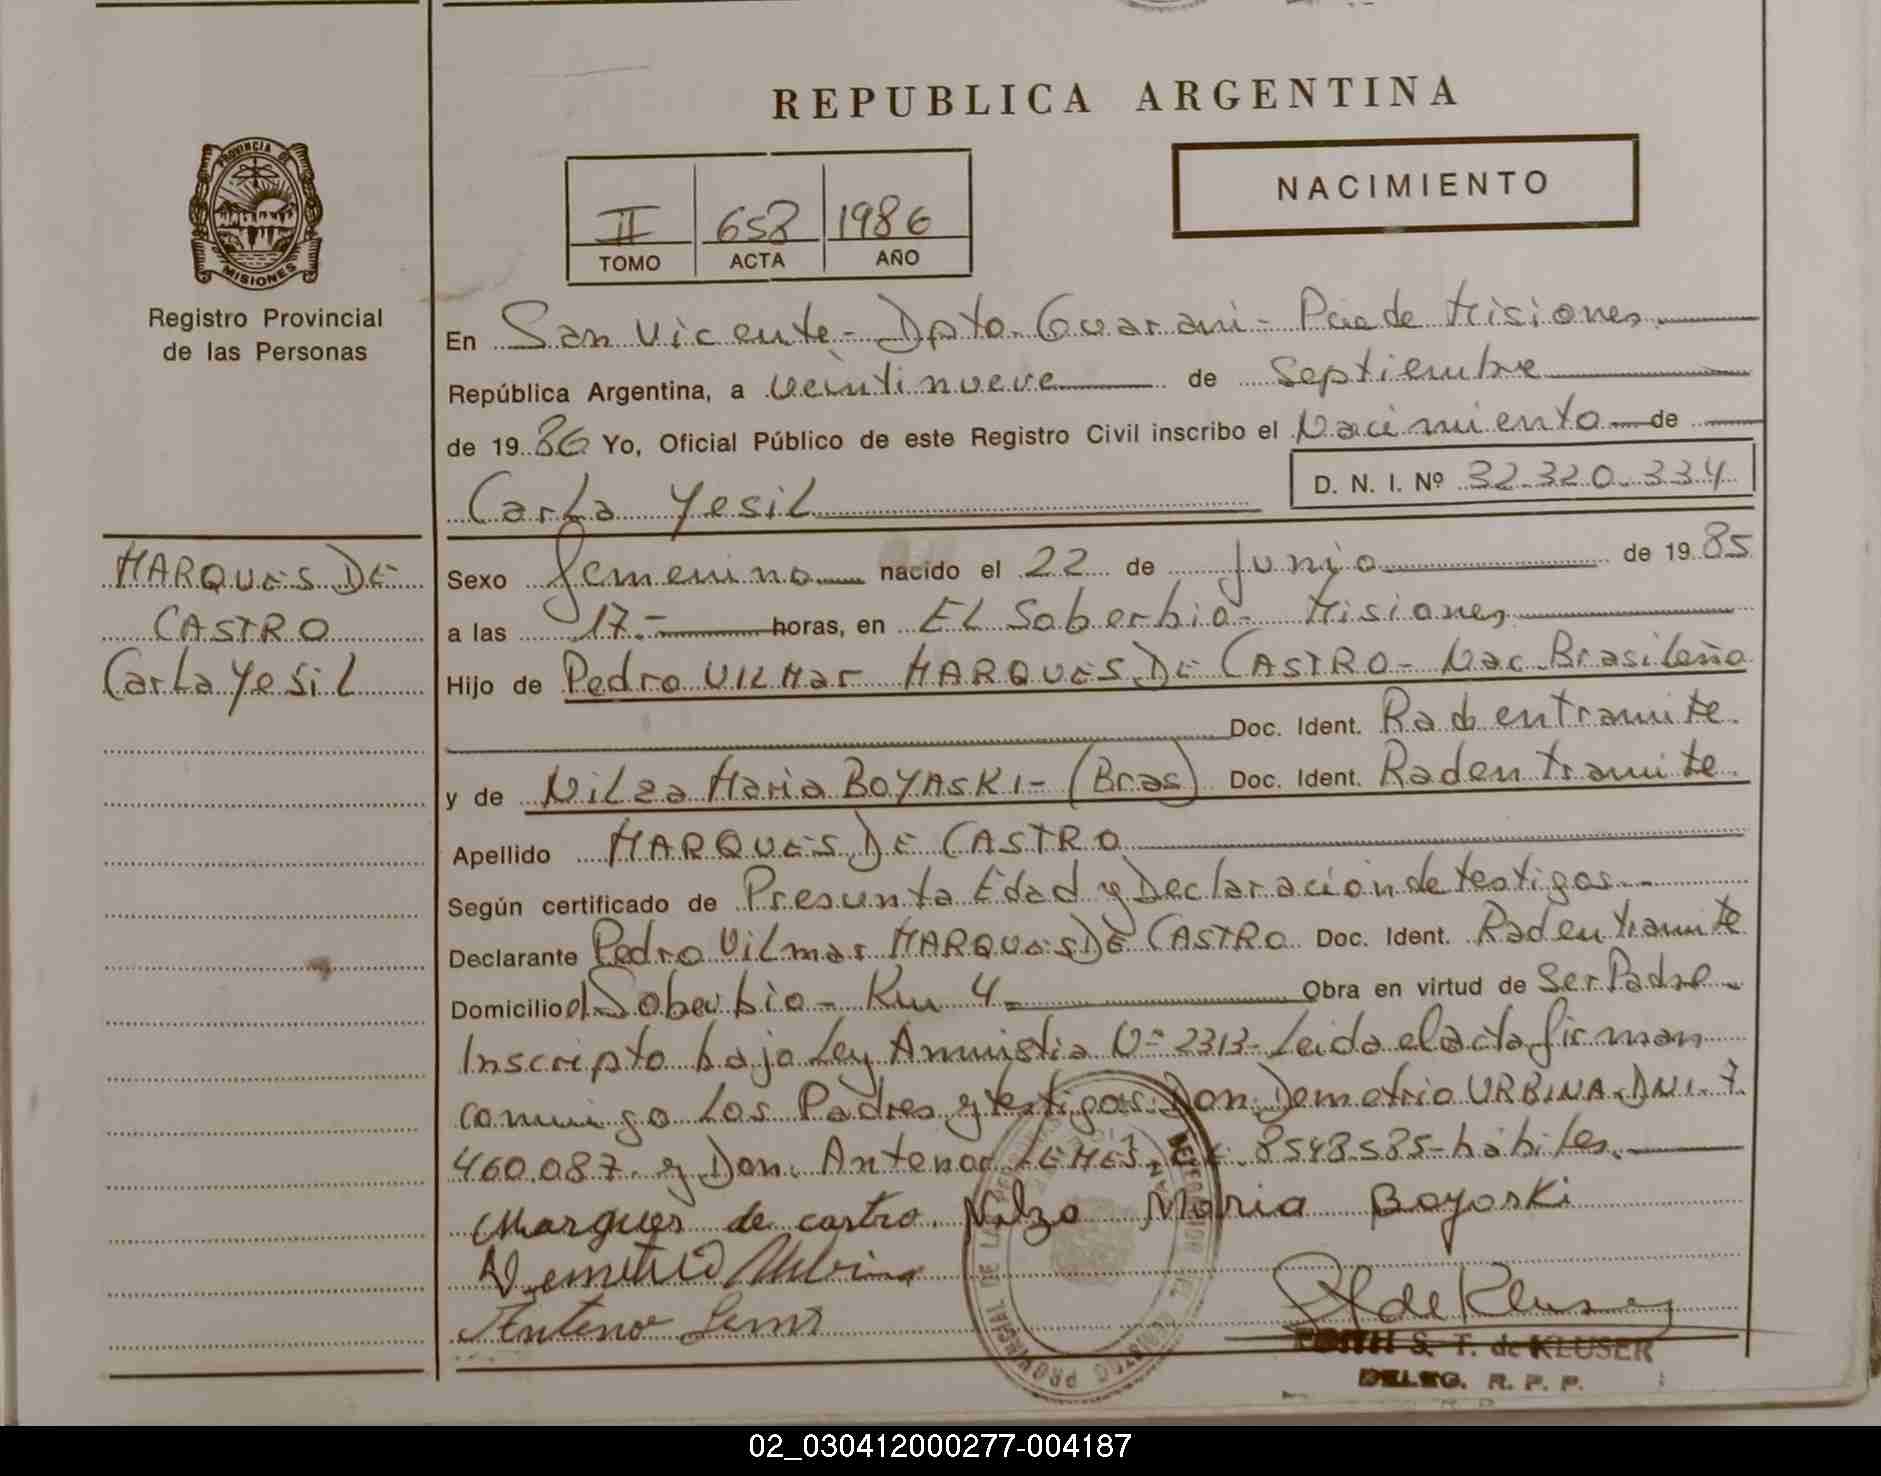 REPUBLICA ARGENTINA
NACIMIENTO
II 658 1986
TOMO ACTA AÑO
PROVINCIA DE
MISIONES
Registro Provincial
de las Personas
En San Vicente - Dpto. Guarani - Pcia de Misiones
República Argentina, a veintinueve de Septiembre
de 1986 Yo, Oficial Público de este Registro Civil inscribo el Nacimiento de
Carla Yesil D. N. I. Nº 32.320.334
MARQUES DE
CASTRO
Carla Yesil
Sexo femenino nacido el 22 de Junio de 1985
a las 17.- horas, en EL Soberbio - Misiones
Hijo de Pedro VILMar MARQUES DE CASTRO - Nac. Brasileño
Doc. Ident. Rad en tramite.
y de Nilza Maria BOYASKI - (Bras) Doc. Ident. Rad en tramite
Apellido MARQUES DE CASTRO
Según certificado de Presunta Edad y Declaración de testigos
Declarante Pedro Vilmar MARQUES DE CASTRO Doc. Ident. Rad en tramite
Domicilio el Soberbio - Km 4 Obra en virtud de Ser Padre
Inscripto bajo Ley Amnistia Nº 2313 - Leida el acta firman
conmigo los Padres y testigos Don Demetrio URBINA DNI. 7.
460.087 y Don. Antenor LEMES 8548585 - hábiles.
Marques de castro Nilza Maria Boyoski
Demetrio Urbina
Antenor Lemes de Kluser
EDITH S. T. de KLUSER
DELEG. R. P. P.
02_030412000277-004187